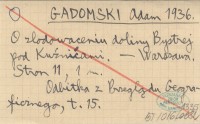 O GADOMSKI Adam 1936.
O zlodowaceniu doliny Bystrej
pod Kuźnicami. — Warszawa.
Stron 11, 1 —.
Odbitka z Przeglądu Geogra-
ficznego, t. 15.